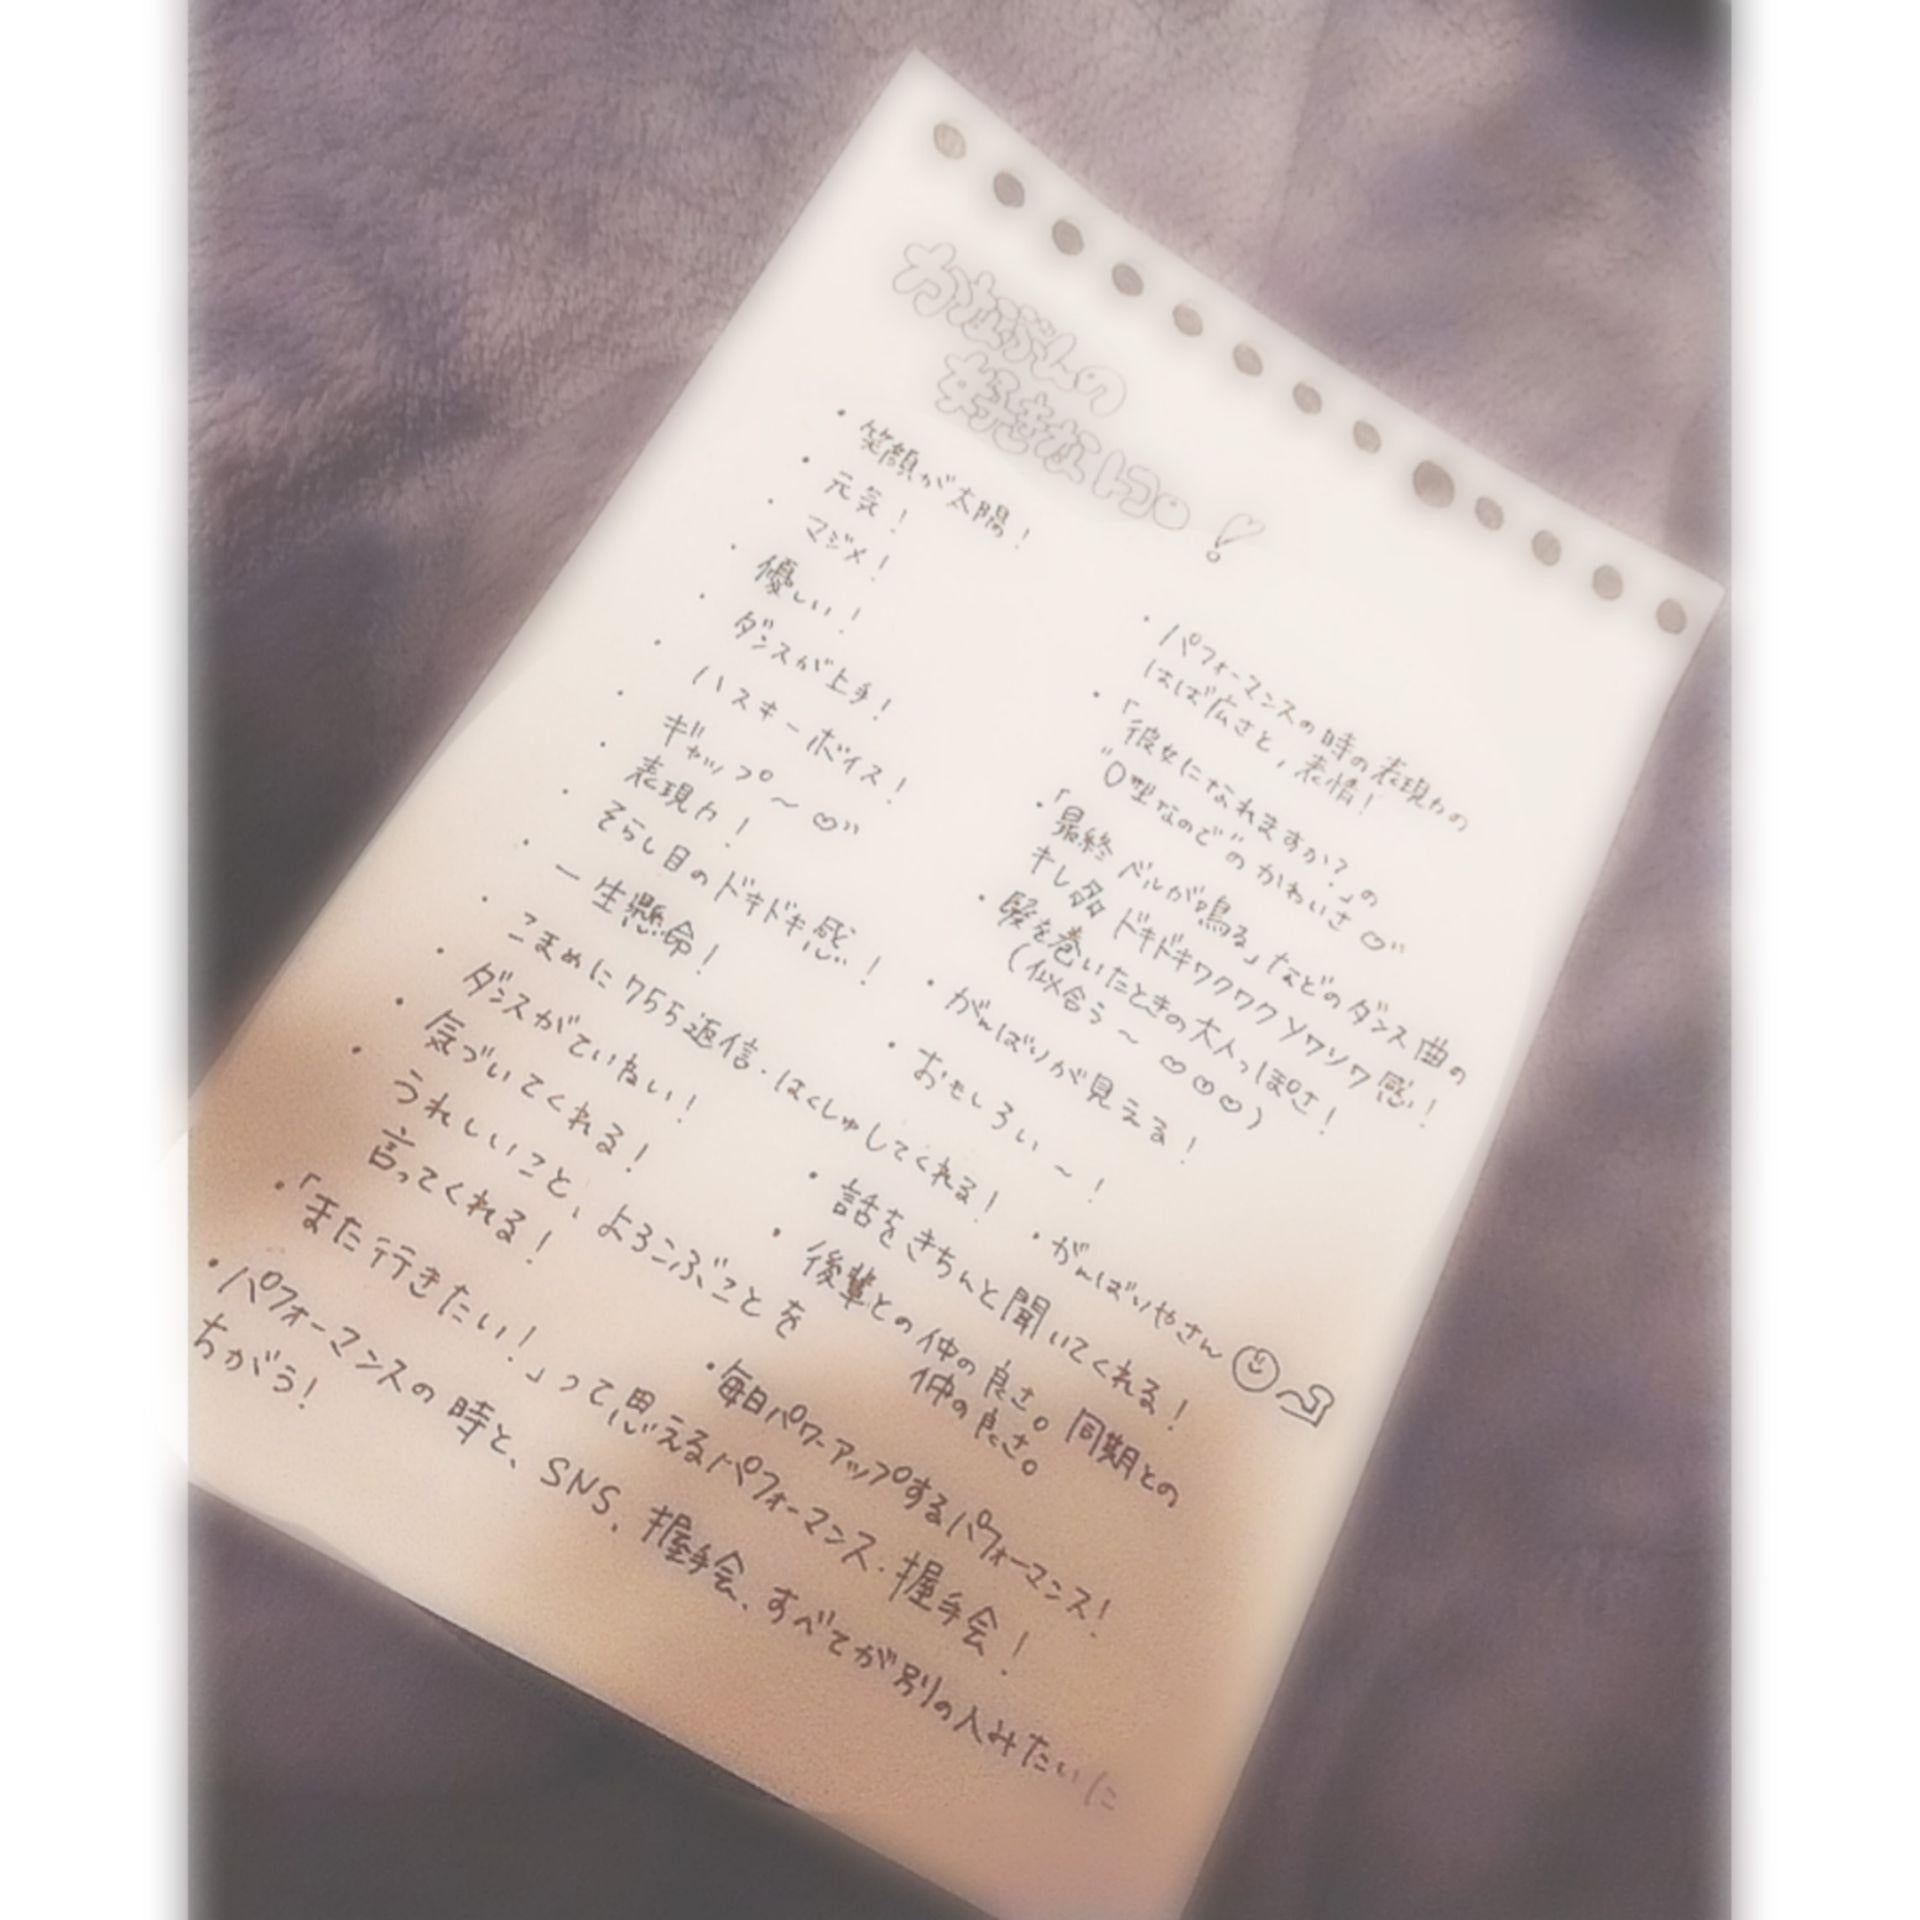 かなぶんの
好きなトコ。!
・笑顔が太陽!
・元気!
・マジメ!
・優しい!
・ダンスが上手!
・ハスキーボイス!
・ギャップ〜♡"
・表現力!
・そらし目のドキドキ感!
・一生懸命!
・こまめに755返信・はくしゅしてくれる!
・ダンスがていねい!
・気づいてくれる!
・うれしいこと、よろこぶことを
言ってくれる!
・「また行きたい!」って思えるパフォーマンス・握手会!
・パフォーマンスの時と、SNS、握手会、すべてが別の人みたいに
ちがう!
・パフォーマンスの時の表現力の
はば広さと,表情!
・「彼女になれますか?」の
"O型なので"のかわいさ♡"
・「最終ベルが鳴る」などのダンス曲の
キレ多 ドキドキワクワクソワソワ感!
・髪を巻いたときの大人っぽさ!
(似合う〜♡♡♡)
・がんばりが見える!
・おもしろい〜!
・がんばりやさん
・話をきちんと聞いてくれる!
・後輩との仲の良さ。同期との
仲の良さ。
・毎日パワーアップするパフォーマンス!